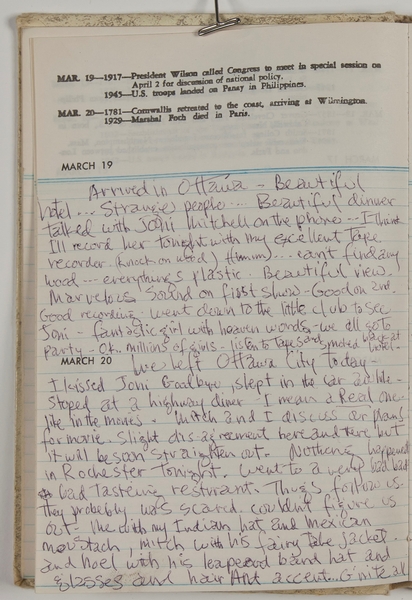 MAR. 19—1917—President Wilson called Congress to meet in special session on
April 2 for discussion of national policy.
1945—U.S. troops landed on Panay in Philippines.
MAR. 20—1781—Cornwallis retreated to the coast, arriving at Wilmington.
1929—Marshal Foch died in Paris.
MARCH 19
Arrived in Ottawa - Beautiful
hotel... Strange people... Beautiful dinner
talked with Joni Mitchell on the phone... I think
I'll record her tonight with my excellent Tape
recorder (knock on wood) (Hmmm)... cant find any
wood... everything's plastic. Beautiful view.
Marvelous sound on first show - Good on 2nd.
Good recording. went down to the little club to see
Joni - fantastic girl with heaven words - we all go to
party - O.K. millions of girls - listen to tapes and smoked back at
hotel -
MARCH 20
We left Ottawa City today -
I kissed Joni Goodbye, slept in the car
Stoped at a highway diner - I mean a Real one
like in the movies. Mitch and I discuss our plans
for movie. Slight disagreement here and there but
it will be soon straighten out. Nothing happened
in Rochester Tonight. went to a very bad bad
bad tasteing resturant. Thugs follow us
they probably was scared. couldn't figure us
out - me with my Indian hat and mexican
moustach, mitch with his fairy tale jacket
and Noel with his leapord band hat and
glasses and hair And accent... G'nite all